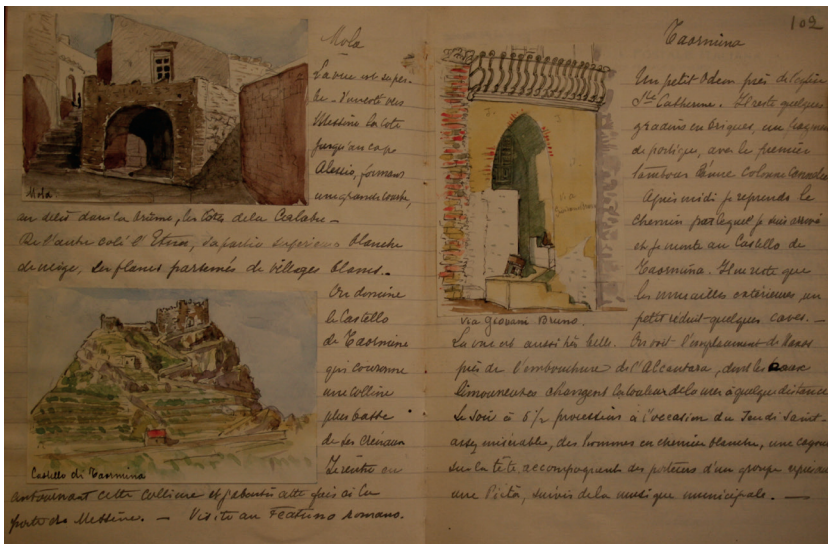 Mola
La vue est super-
be - Vue côté vers
Messine la côte
jusqu'au cap
Alessio, formant
une grande courbe,
au delà dans la brume, les côtes de la Calabre -
De l'autre côté l'Etna, sa partie supérieure blanche
de neige, ses flancs parsemés de villages blancs. -
Mola
On domine
le Castello
de Taormine
qui couronne
une colline
plus basse
de ses créneaux
Je rentre en
contournant cette colline et j'aboutis cette fois à la
porte de Messine. - Visite au teatrino romano.
Castello di Taormina
102
Taormina
Un petit Odeon près de l'église
Ste Catherine. Il reste quelques
gradins en briques, un fragment
de portique, avec le premier
tambour d'une colonne
Après midi je reprends le
chemin par lequel je suis arrivé
et je monte au Castello de
Taormina. Il ne reste que
les murailles extérieures, un
petit réduit - quelques caves. -
via Giovani Bruno.
La vue est aussi très belle. On voit l'emplacement de Naxos
près de l'embouchure de l'Alcantara, dont les eaux
limoneuses changent la couleur de la mer à quelque distance
Le soir à 6 1/2 procession à l'occasion du Jeudi Saint -
assez misérable, des hommes en chemise blanche, une cagoule
sur la tête, accompagnant des porteurs d'un groupe
une Piéta, suivis de la musique municipale. -